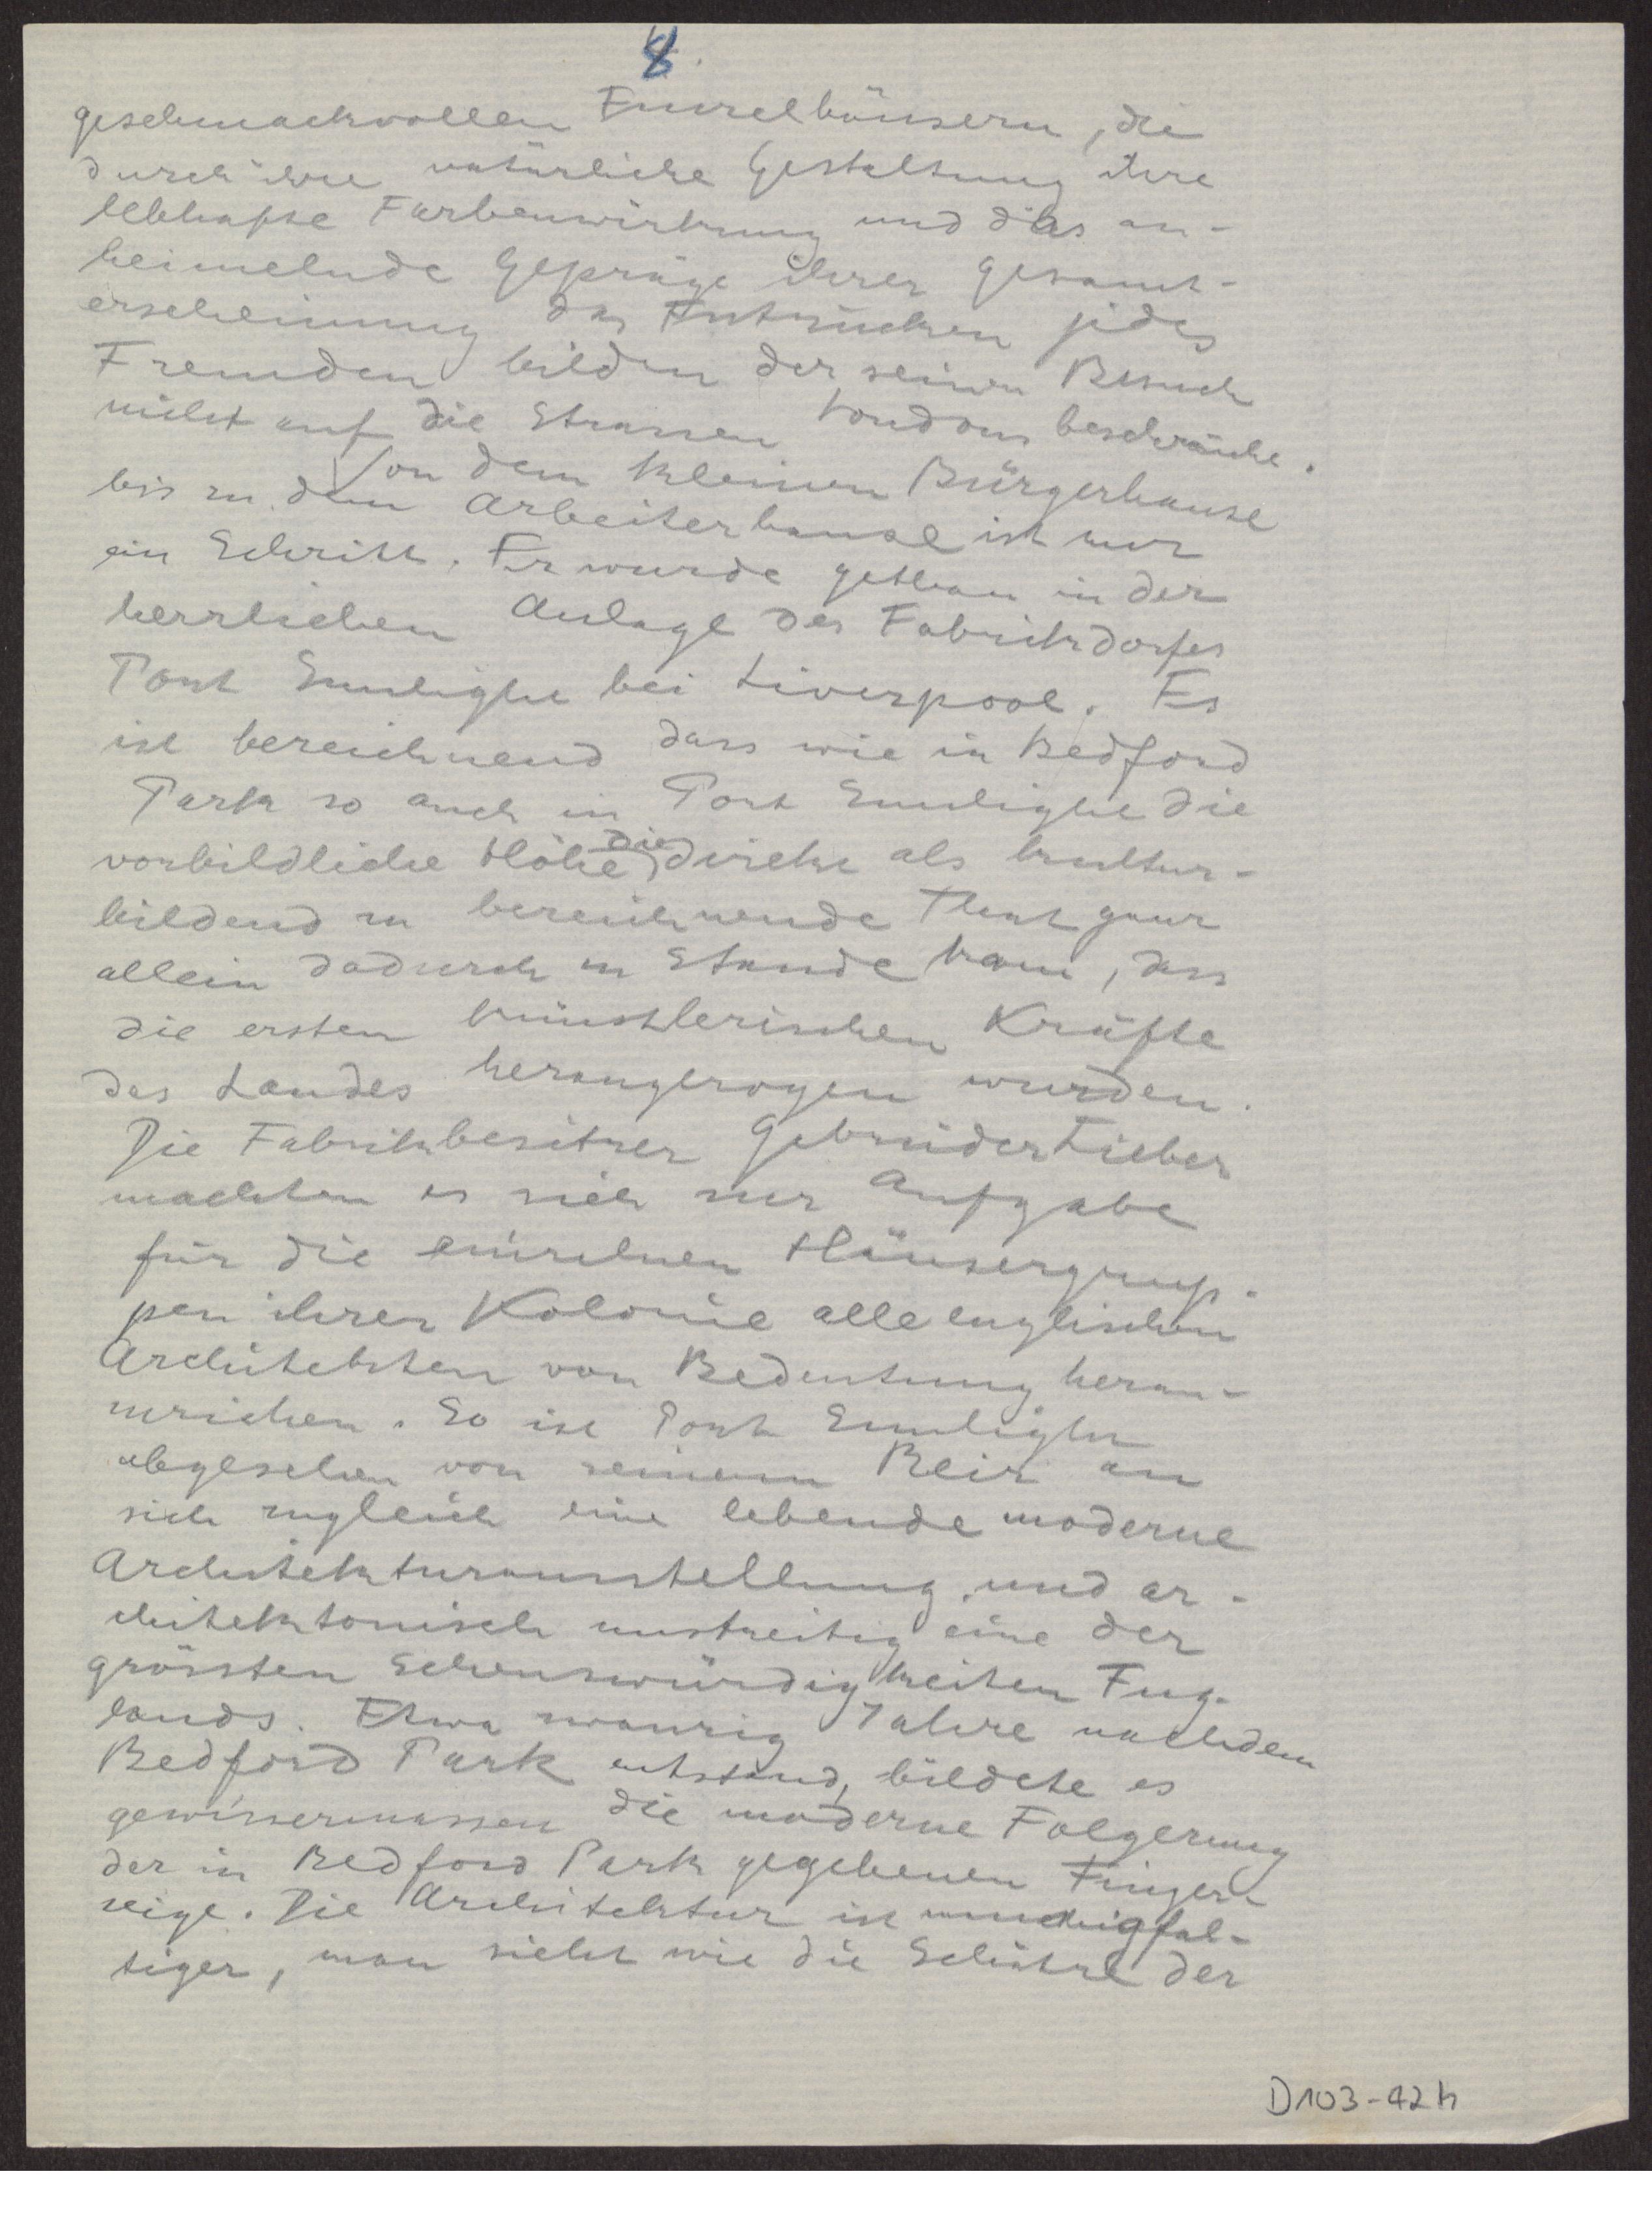 8.
geschmackvollen Einzelhäusern, die
durch ihre natürliche Gestaltung ihre
lebhafte Farbenwirkung und das an-
heimelnde Gepräge ihrer Gesamt-
erscheinung das Entzücken jedes
Fremden bilden der seinen Besuch
nicht auf die Strassen Londons beschränkt.
Von dem kleinen Bürgerhause
bis zu dem Arbeiterhause ist nur
ein Schritt. Er wurde gethan in der
herrlichen Anlage des Fabrikdorfes
Port Sunlight bei Liverpool. Es
ist bezeichnend dass wie in Bedford
Park so auch in Port Sunlight die
vorbildliche Höhe die direkt als kultur-
bildend zu bezeichnende That ganz
allein dadurch zu Stande kam, dass
die ersten künstlerischen Kräfte
des Landes herangezogen wurden.
Die Fabrikbesitzer Gebrüder Lieber
machten es sich zur Aufgabe
für die einzelnen Häusergrup-
pen ihrer Kolonie alle englischen
Architekten von Bedeutung heran-
zuziehen. So ist Port Sunlight
abgesehen von seinem Reiz an
sich zugleich eine lebende moderne
Architekturausstellung und ar-
chitektonisch unstreitig eine der
grössten Sehenswürdigkeiten Eng-
lands. Etwa zwanzig Jahre nachdem
Bedford Park entstand, bildete es
gewissermassen die moderne Folgerung
der in Bedford Park gegebenen Finger-
zeige. Die Architektur ist mannigfal-
tiger, man sieht wie die Schätze der
D103-42h